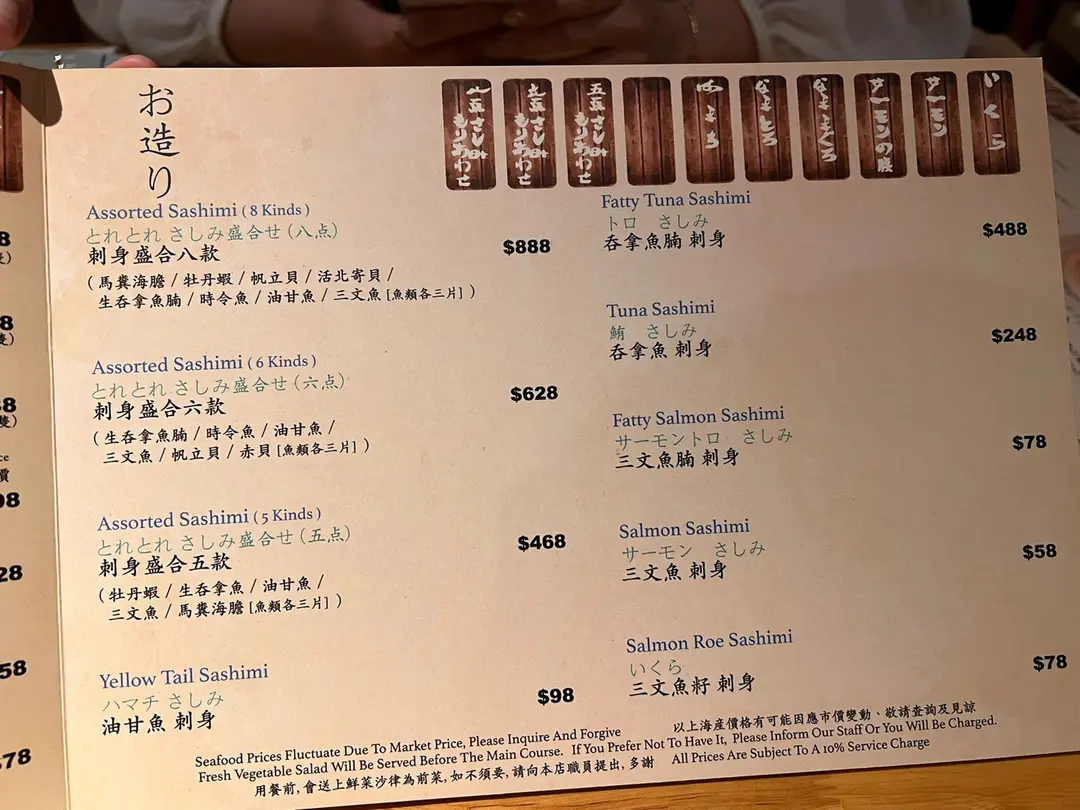 お造り
五点 さし身 もりあわせ
サーモンの腹
サーモン
いくら
Assorted Sashimi ( 8 Kinds )
とれとれ さしみ盛合せ (八点)
刺身盛合八款
$888
( 馬糞海膽 / 牡丹蝦 / 帆立貝 / 活北寄貝 /
生吞拿魚腩 / 時令魚 / 油甘魚 / 三文魚 [魚類各三片] )
Assorted Sashimi ( 6 Kinds )
とれとれ さしみ盛合せ (六点)
刺身盛合六款
$628
( 生吞拿魚腩 / 時令魚 / 油甘魚 /
三文魚 / 帆立貝 / 赤貝 [魚類各三片] )
Assorted Sashimi ( 5 Kinds )
とれとれ さしみ盛合せ (五点)
刺身盛合五款
$468
( 牡丹蝦 / 生吞拿魚 / 油甘魚 /
三文魚 / 馬糞海膽 [魚類各三片] )
Yellow Tail Sashimi
ハマチ さしみ
油甘魚 刺身
$98
Fatty Tuna Sashimi
トロ さしみ
吞拿魚腩 刺身
$488
Tuna Sashimi
鮪 さしみ
吞拿魚 刺身
$248
Fatty Salmon Sashimi
サーモントロ さしみ
三文魚腩 刺身
$78
Salmon Sashimi
サーモン さしみ
三文魚 刺身
$58
Salmon Roe Sashimi
いくら
三文魚籽 刺身
$78
以上海產價格有可能因應市價變動、敬請查詢及見諒
Seafood Prices Fluctuate Due To Market Price, Please Inquire And Forgive
Fresh Vegetable Salad Will Be Served Before The Main Course. If You Prefer Not To Have It, Please Inform Our Staff Or You Will Be Charged.
用餐前, 會送上鮮菜沙律為前菜, 如不須要, 請向本店職員提出, 多謝
All Prices Are Subject To A 10% Service Charge